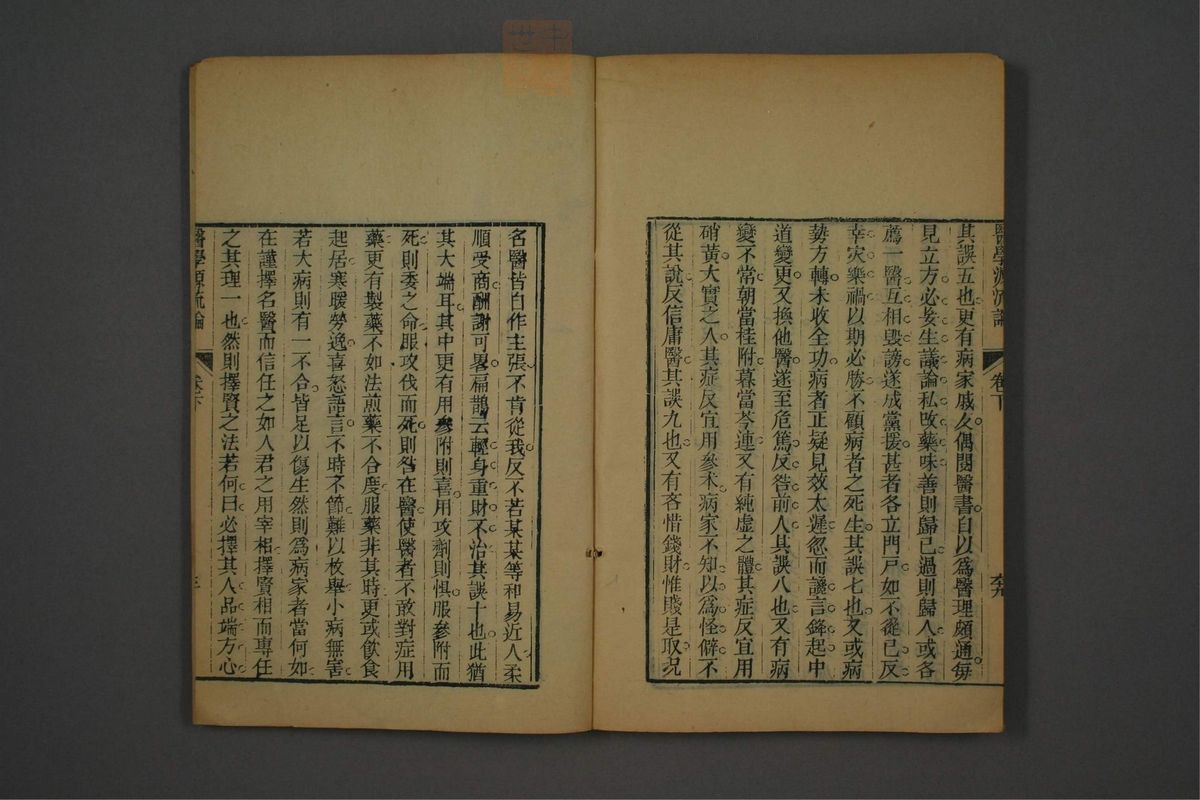 醫學源流論 卷下
其誤五也更有病家戚友偶閱醫書自以爲醫理頗通每
見立方必妄生議論私改藥味善則歸已過則歸人或各
薦一醫互相毀謗遂成黨援甚者各立門戶如不從已反
幸灾樂禍以期必勝不顧病者之死生其誤七也又或病
勢方轉未收全功病者正疑見效太遲忽而讒言鋒起中
道變更又換他醫遂至危篤反咎前人其誤八也又有病
變不常朝當桂附暮當芩連又有純虛之體其症反宜用
硝黃大實之人其症反宜用參朮病家不知以爲怪僻不
從其說反信庸醫其誤九也又有吝惜錢財惟賤是取况
名醫皆自作主張不肯從我反不若某某等和易近人柔
順受商酬謝可畧扁鵲云輕身重財不治其誤十也此猶
其大端耳其中更有用參附則喜用攻劑則懼服參附而
死則委之命服攻伐而死則咎在醫使醫者不敢對症用
藥更有製藥不如法煎藥不合度服藥非其時更或飲食
起居寒暖勞逸喜怒語言不時不節難以枚舉小病無害
若大病則有一不合皆足以傷生然則爲病家者當何如
在謹擇名醫而信任之如人君之用宰相擇賢相而專任
之其理一也然則擇賢之法若何曰必擇其人品端方心
醫學源流論 卷下